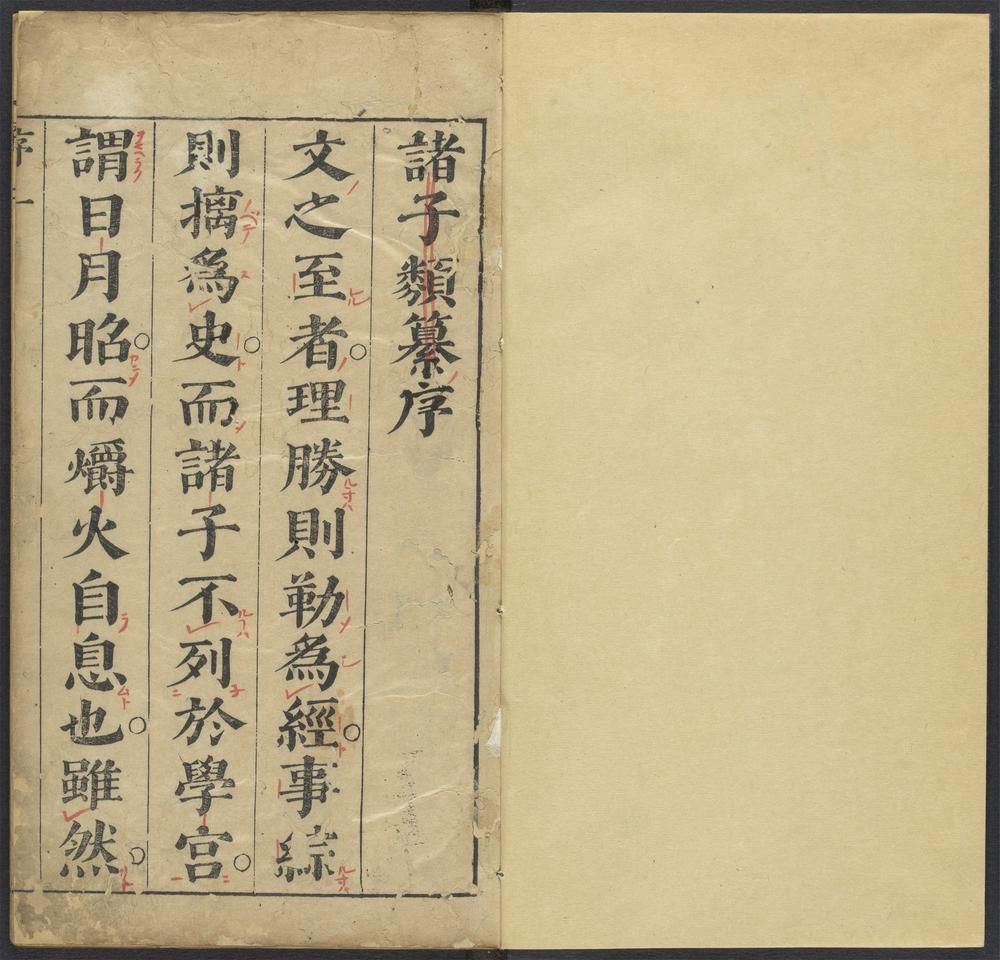 諸子類纂序
文之至者○理勝則勒爲經○事綜
則摛爲史○而諸子不列於學宫○
謂日月昭○而爝火自息也○雖然○
序 一